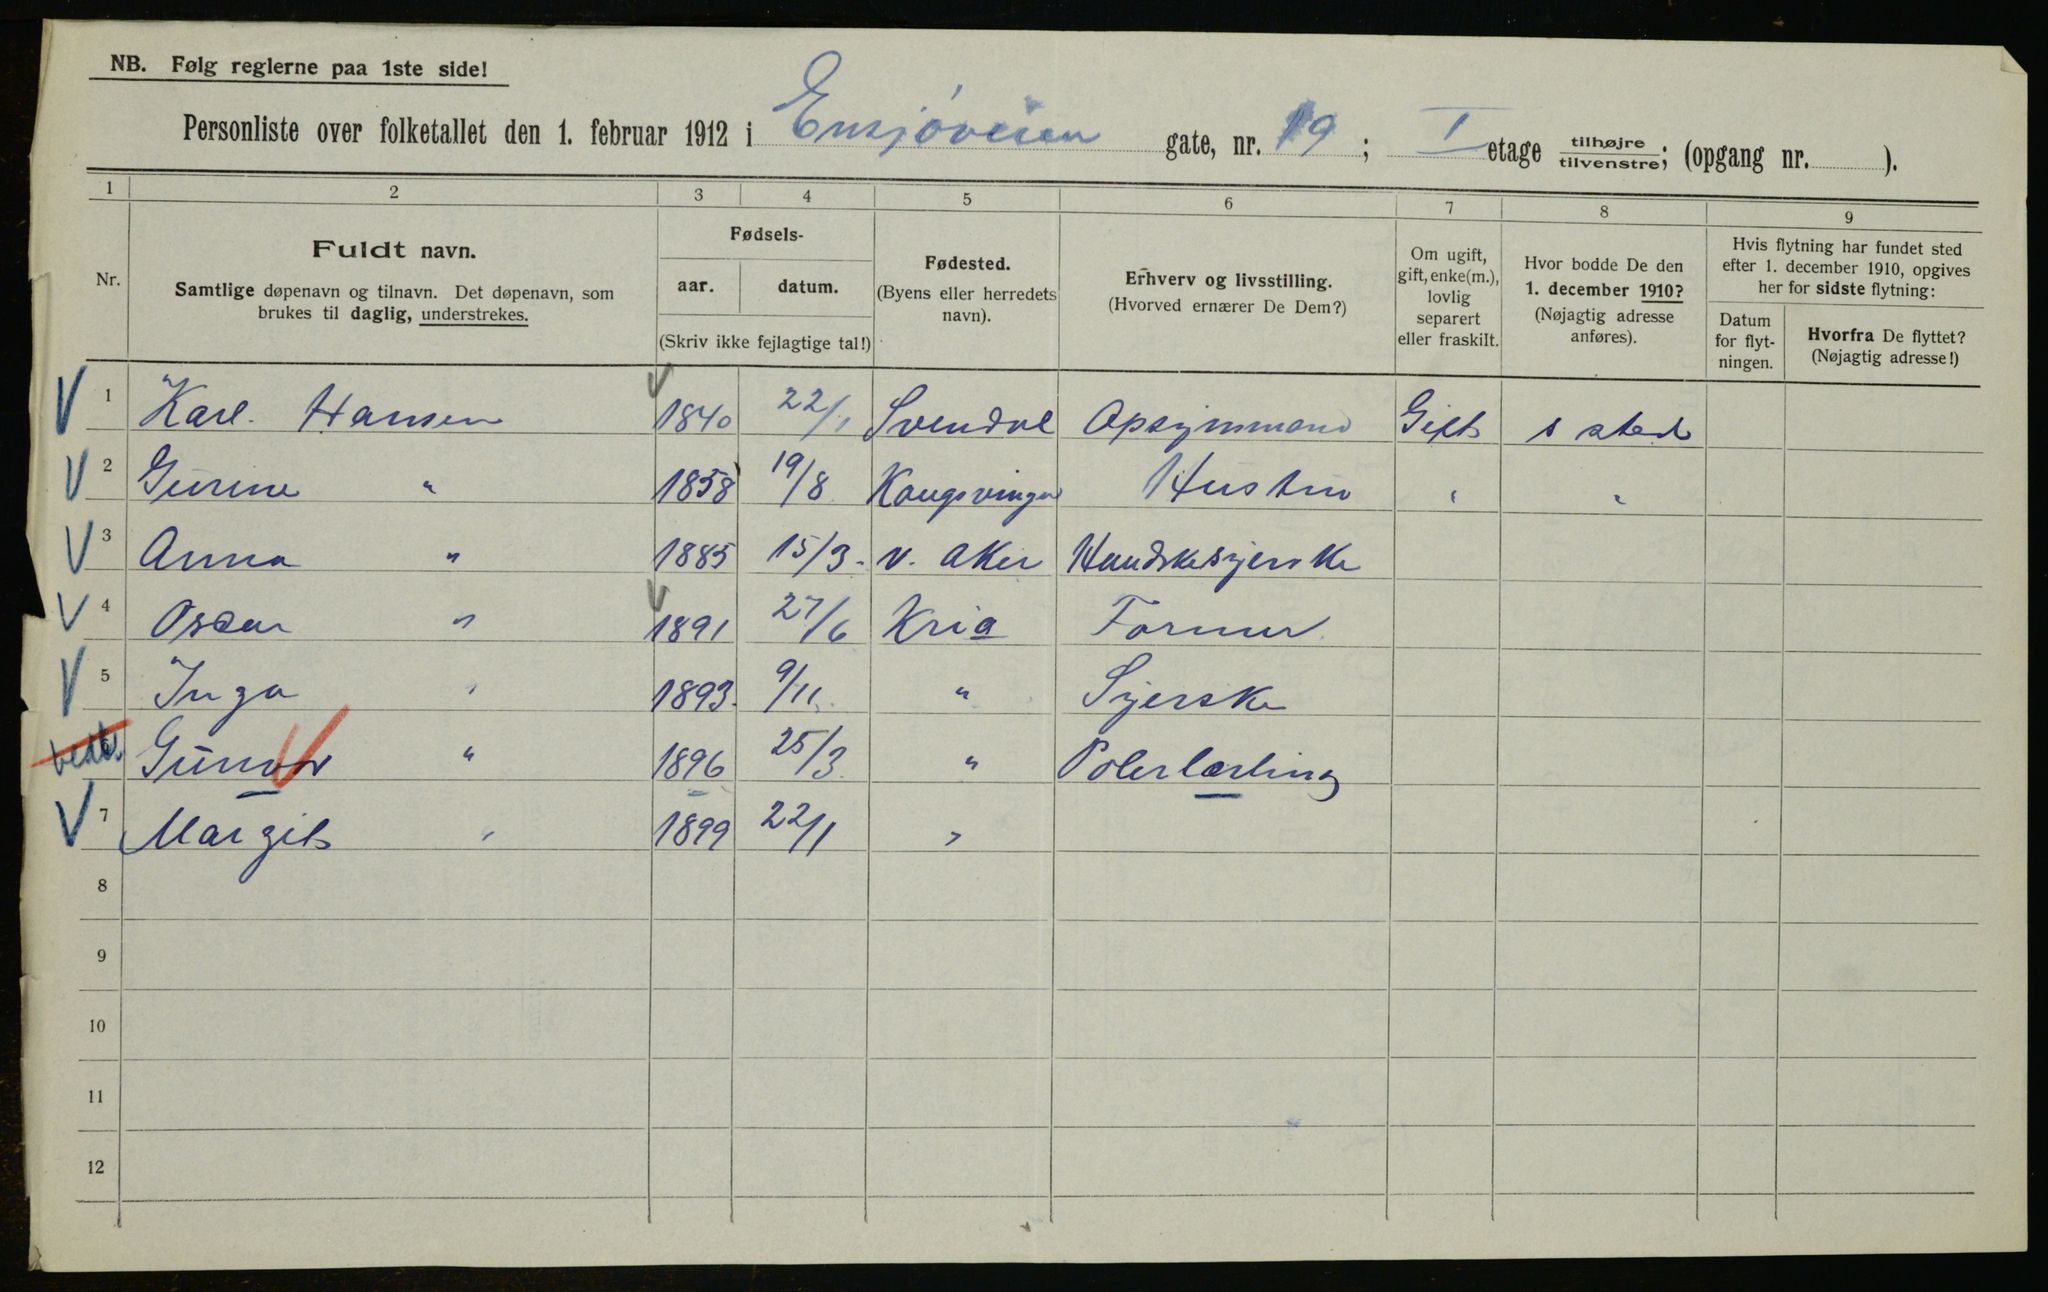 NB. Følg reglerne paa 1ste side!
Personliste over folketallet den 1. februar 1912 i Ensjøveien gate, nr. 19; I etage tilhøjre/tilvenstre; (opgang nr. ).
1 2 3 4 5 6 7 8 9
Nr.
Fuldt navn.
Samtlige døpenavn og tilnavn. Det døpenavn, som
brukes til daglig, understrekes.
Fødsels-
aar. datum.
(Skriv ikke fejlagtige tal!)
Fødested.
(Byens eller herredets
navn).
Erhverv og livsstilling.
(Hvorved ernærer De Dem?)
Om ugift,
gift, enke(m.),
lovlig
separert
eller fraskilt.
Hvor bodde De den
1. december 1910?
(Nøjagtig adresse
anføres).
Hvis flytning har fundet sted
efter 1. december 1910, opgives
her for sidste flytning:
Datum
for flyt-
ningen.
Hvorfra De flyttet?
(Nøjagtig adresse!)
1 Karl. Hansen 1840 22/1 Opsynmand Gift s sted
2 " 1858 19/8 Kongsvinger Hustru " "
3 Anna " 1885 15/3 v. Aker Handskesyerske
4 Oscar " 1891 27/6 Kria Former
5 Inga " 1893. 9/11 " Syerske
Gunvor " 1896 25/3 " Polerlærling
7 Margit " 1899 22/1 "
8
9
10
11
12